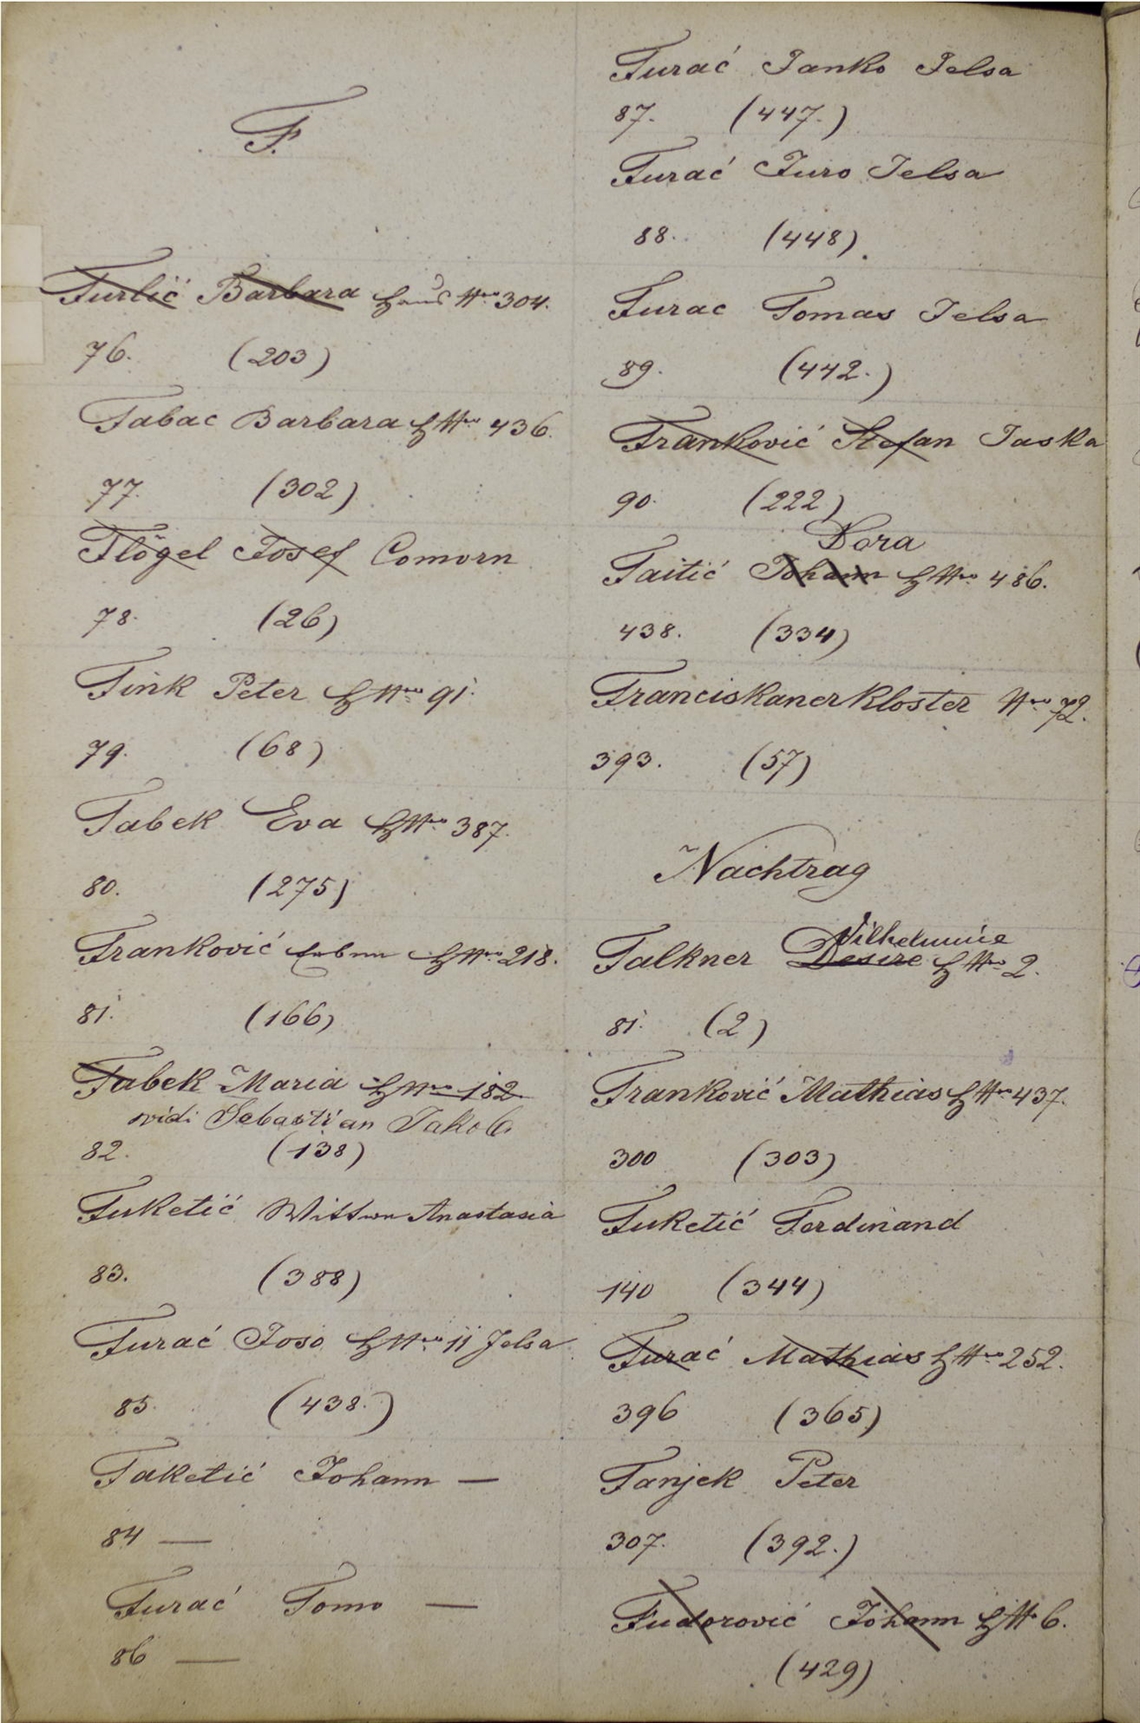 F.
Furlić Barbara Haus Nro 304.
76. (203)
Fabac Barbara H Nro 436.
77. (302)
Flögel Josef Comorn
78. (26)
Fink Peter H Nro 91.
79. (68)
Fabek Eva H Nro 387.
80. (275)
Franković H Nro 218.
81. (166)
Fabek Maria H Nro 182
vidi Sebastian Jakob
82. (138)
Fuketić Wittwe Anastasia
83. (388)
Furać Joso H Nro 11 Jelsa
85. (438.)
Faketić Johann —
84 —
Furać Tomo —
86 —
Furać Janko Jelsa
87. (447.)
Furać Juro Jelsa
88. (448).
Furac Tomas Jelsa
89. (442.)
Franković Stefan Jaska
90. (222)
Dora
Faitić Johann H Nro 486.
438. (334)
Franciskanerkloster Nro 72.
393. (57)
Nachtrag
Wilhelmine
Falkner Desire H Nro 2.
81. (2)
Franković Mathias H Nro 437.
300 (303)
Fuketić Ferdinand
140 (344)
Furać Mathias H Nro 252.
396 (365)
Fanjek Peter
307. (392.)
Fudorović Johann H N 6.
(429)